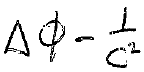 Δϕ - 1/c²